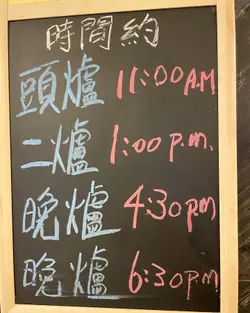 時間約
頭爐 11:00 A.M
二爐 1:00 p.m.
晚爐 4:30 pm
晚爐 6:30 pm